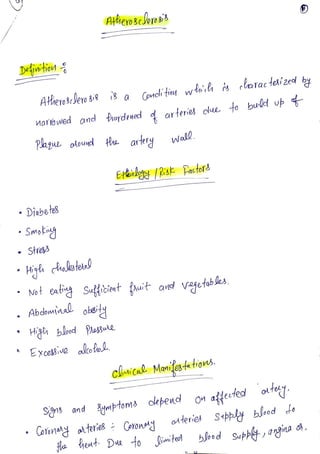 Atherosclerosis
Definition :-
Atherosclerosis is a Condition which is characterized by
narrowed and hardened of arteries due to build up of
Plaque around the artery wall.
Etiology / Risk Factors
• Diabetes
• Smoking
• Stress
• High cholesterol
• Not eating Sufficient fruit and vegetables.
• Abdominal obesity
• High blood Pressure
• Excessive alcohol.
Clinical Manifestations.
Signs and Symptoms depend on affected artery.
• Coronary arteries : Coronary arteries Supply blood to
the heart. Due to limited blood Supply, angina or.